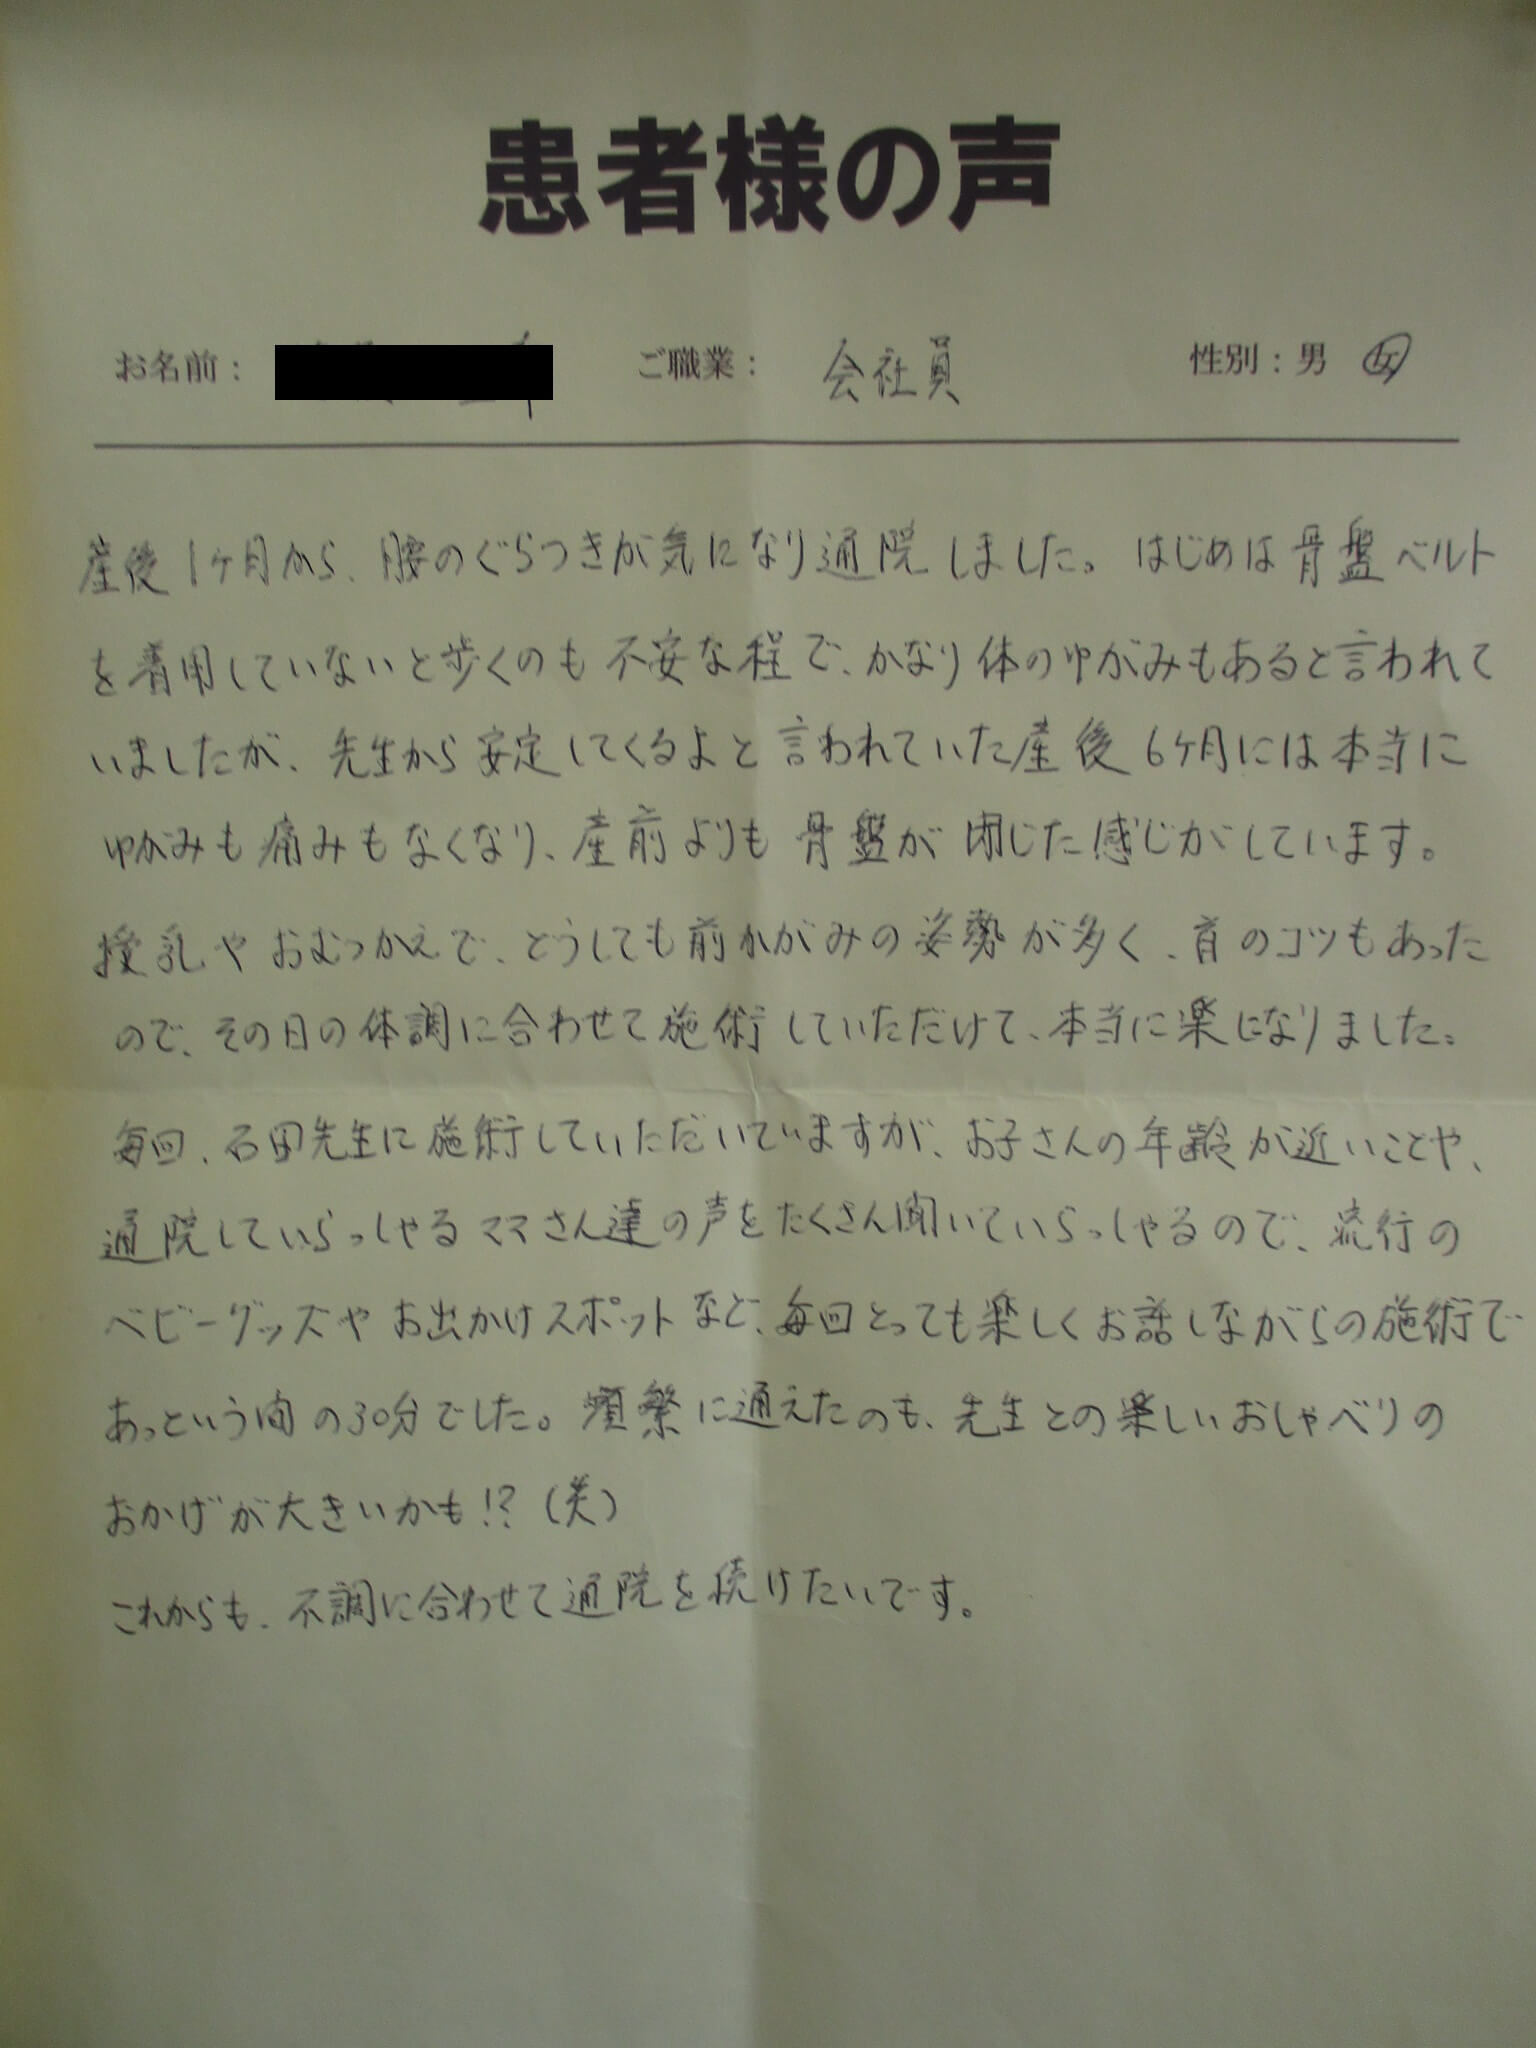 患者様の声
お名前： ご職業： 会社員 性別：男 女
産後1ヶ月から、腰のぐらつきが気になり通院しました。はじめは骨盤ベルト
を着用していないと歩くのも不安な程で、かなり体のゆがみもあると言われて
いましたが、先生から安定してくるよと言われていた産後6ヶ月には本当に
ゆがみも痛みもなくなり、産前よりも骨盤が閉じた感じがしています。
授乳やおむつかえで、どうしても前かがみの姿勢が多く、首のコツもあった
ので、その日の体調に合わせて施術していただけて、本当に楽になりました。
毎回、石田先生に施術していただいていますが、お子さんの年齢が近いことや、
通院していらっしゃるママさん達の声をたくさん聞いていらっしゃるので、流行の
ベビーグッズやお出かけスポットなど、毎回とっても楽しくお話しながらの施術で
あっという間の30分でした。頻繁に通えたのも、先生との楽しいおしゃべりの
おかげが大きいかも!?(笑)
これからも、不調に合わせて通院を続けたいです。